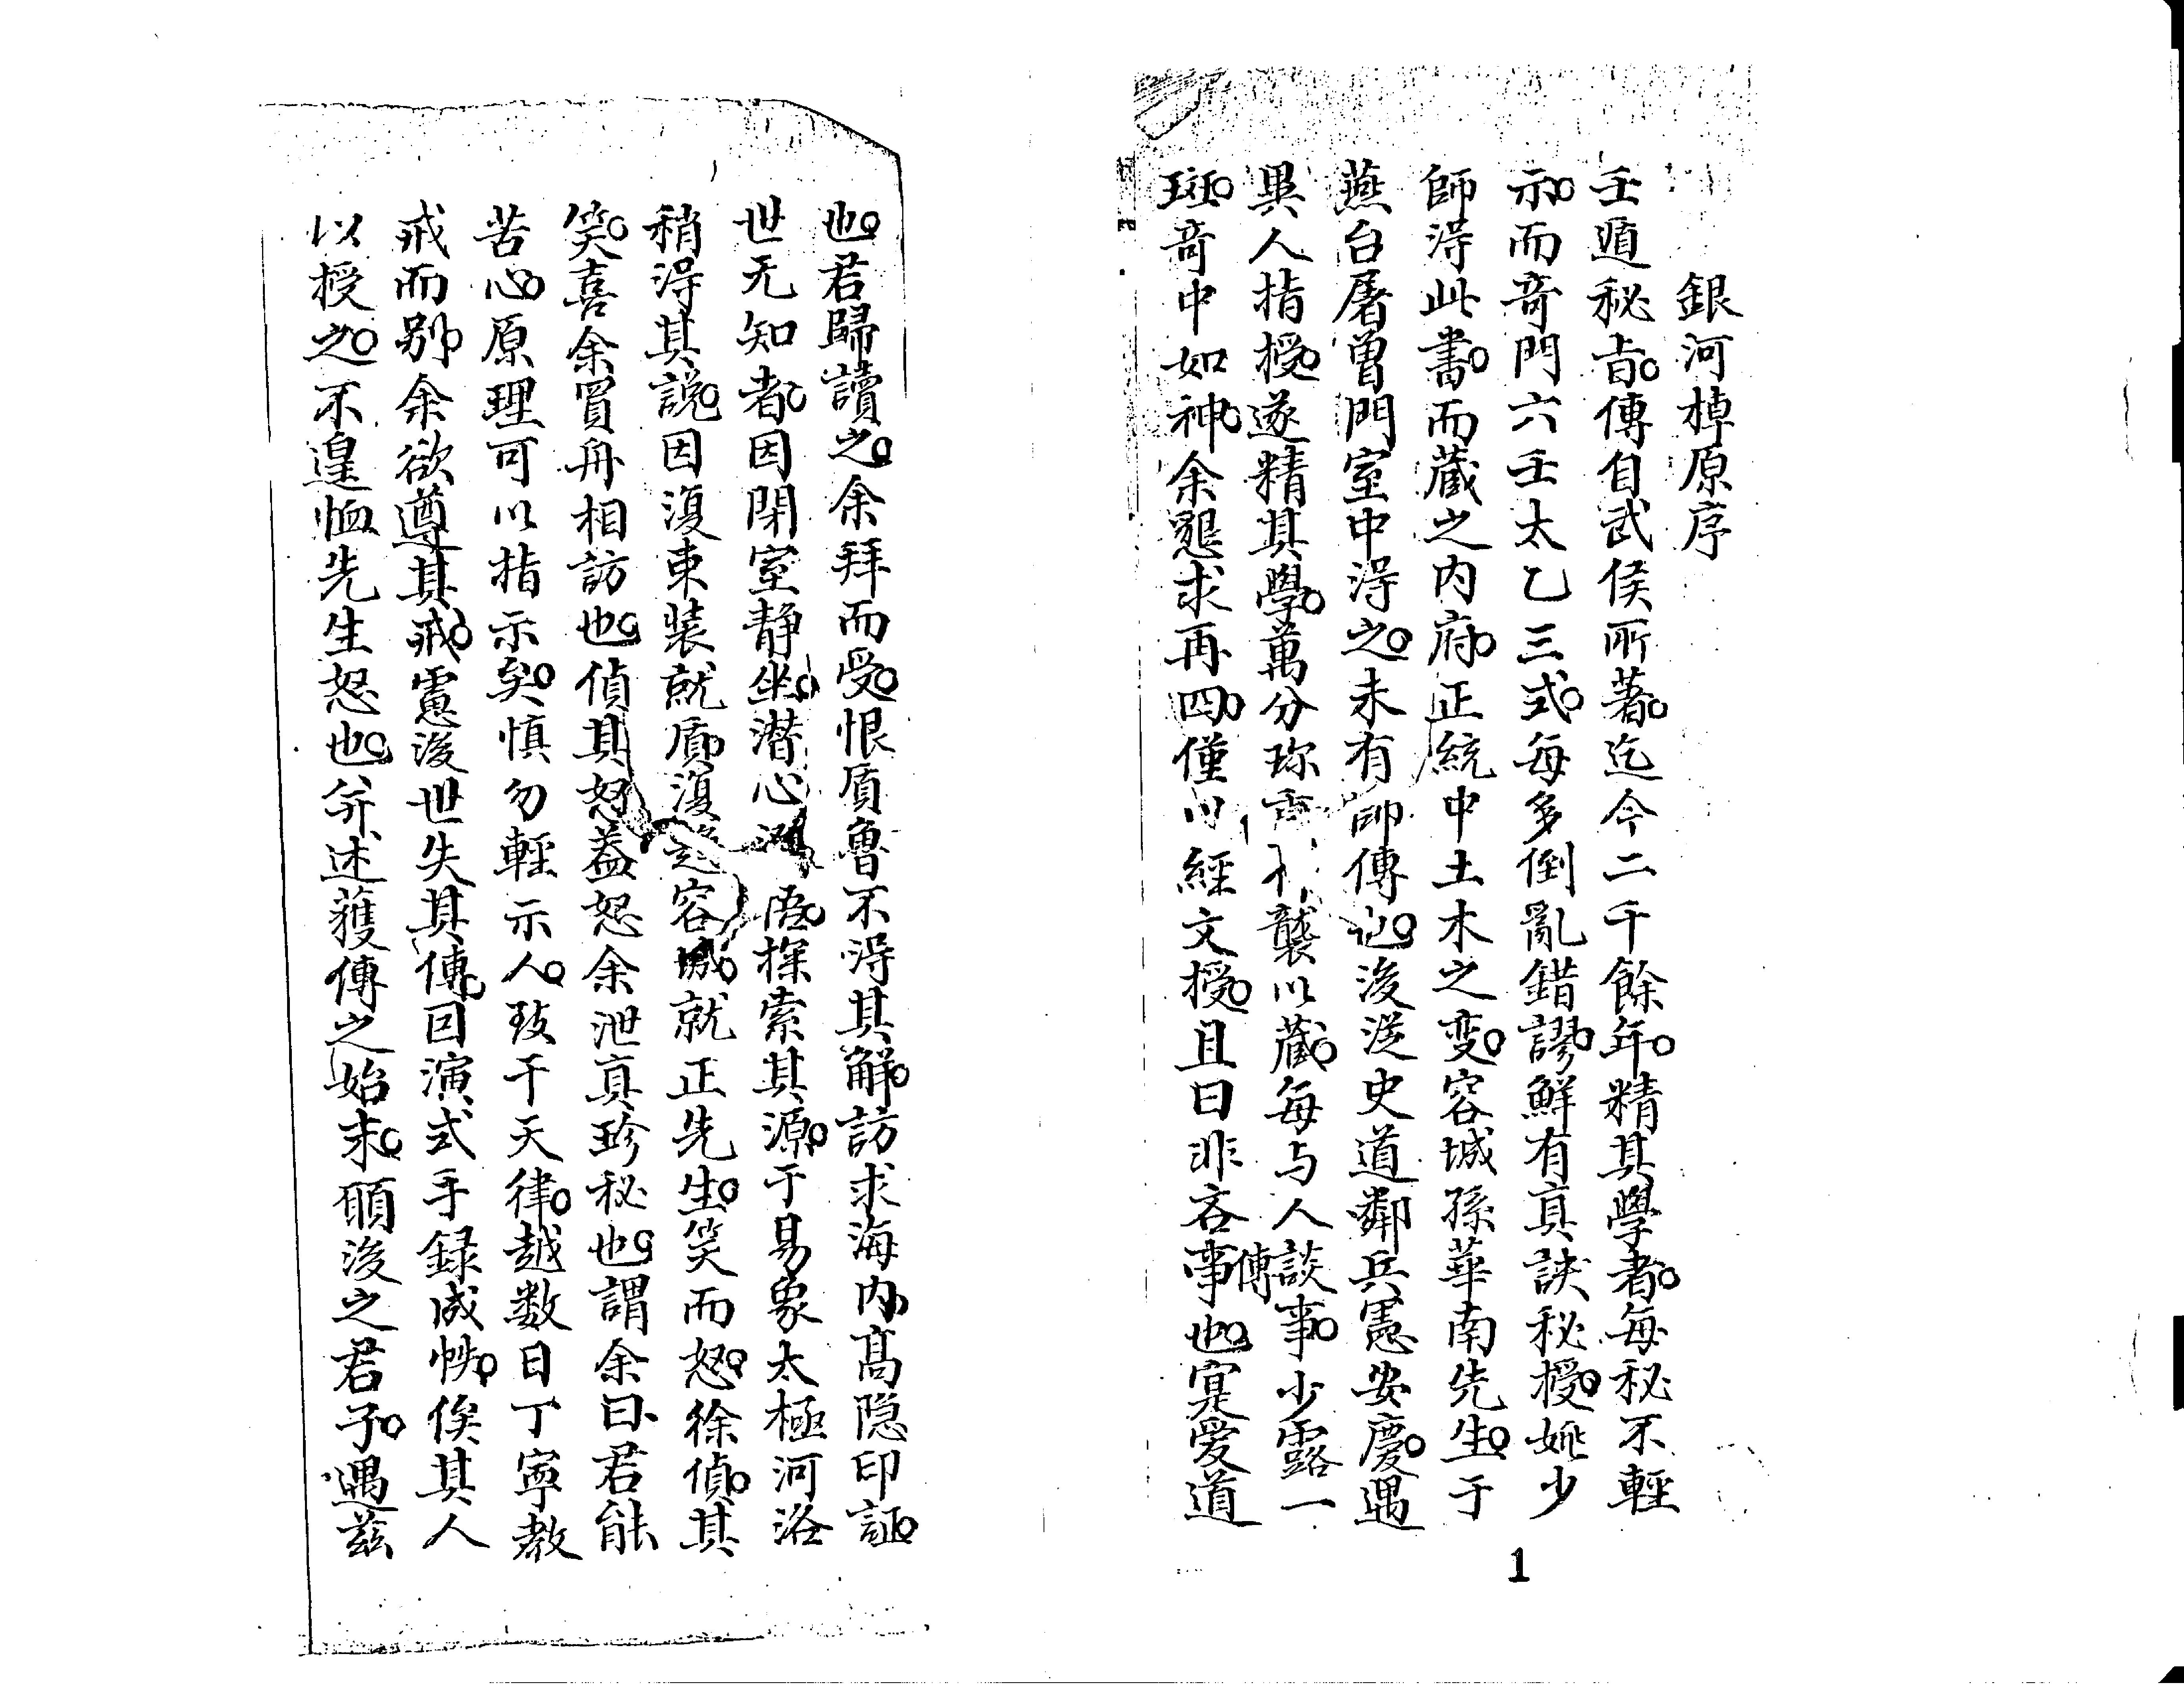 銀河棹原序
壬遁秘旨。傳自武侯所著。迄今二千餘年。精其學者。每秘不輕
示。而竒門六壬太乙三式。每多倒亂錯謬。鮮有真訣秘授。姚少
師淂此書。而蔵之内府。正統中土木之变。容城孫華南先生。于
燕台屠曽門室中淂之。未有師傳也。後従史道鄰兵憲安慶。遇
異人指授。遂精其學。萬分珎襲以藏。每与人談事。少露一
傳
斑。竒中如神。余懇求再四。僅以經文授。且曰非吝事也。寔愛道
也。君歸讀之。余拜而受。恨質魯不淂其解。訪求海内高隐印証。
世无知者。因閉室静坐。潜心悟。探索其源。于易象太極河洛
稍淂其説。因復束装就質。復容城。就正先生。笑而怒。徐偵其
笑。喜余買舟相訪也。偵其怒。葢怒余泄真珍秘也。謂余曰、君能
苦心。原理可以指示矣。慎勿輕示人。致干天律。越数日丁寧教
戒而别。余欲遵其戒。慮後世失其傳。因演式手録成帙。俟其人
以授之。不遑恤先生怒也。并述獲傳之始末。願後之君子。遇兹
1